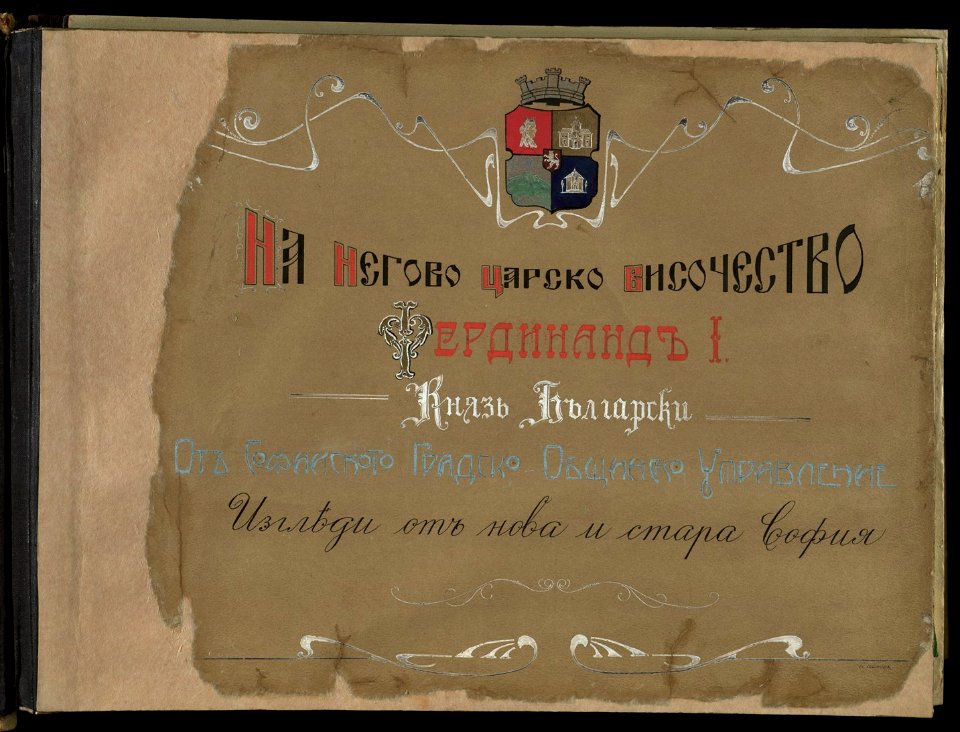 На Негово Царско Височество
Фердинандъ I.
Князь Български
Отъ Софийското Градско-Общинско Управление
Изглѣди отъ нова и стара София